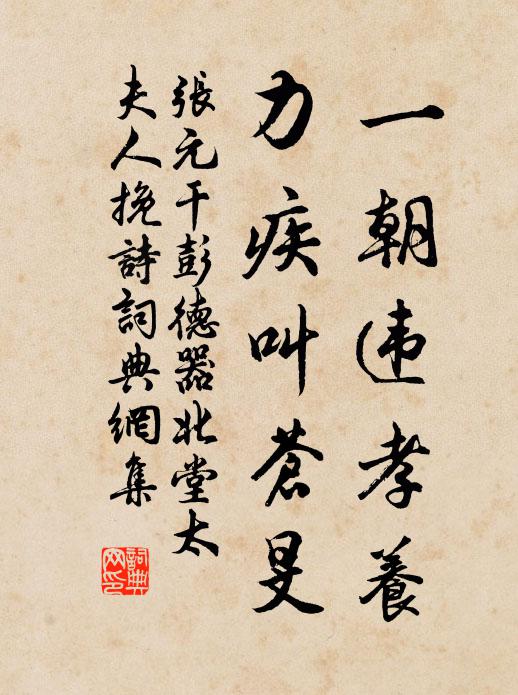 一朝违孝養
力疾叫蒼旻
張元干彭德器北堂太
夫人挽詩詞典網集
詞典網印